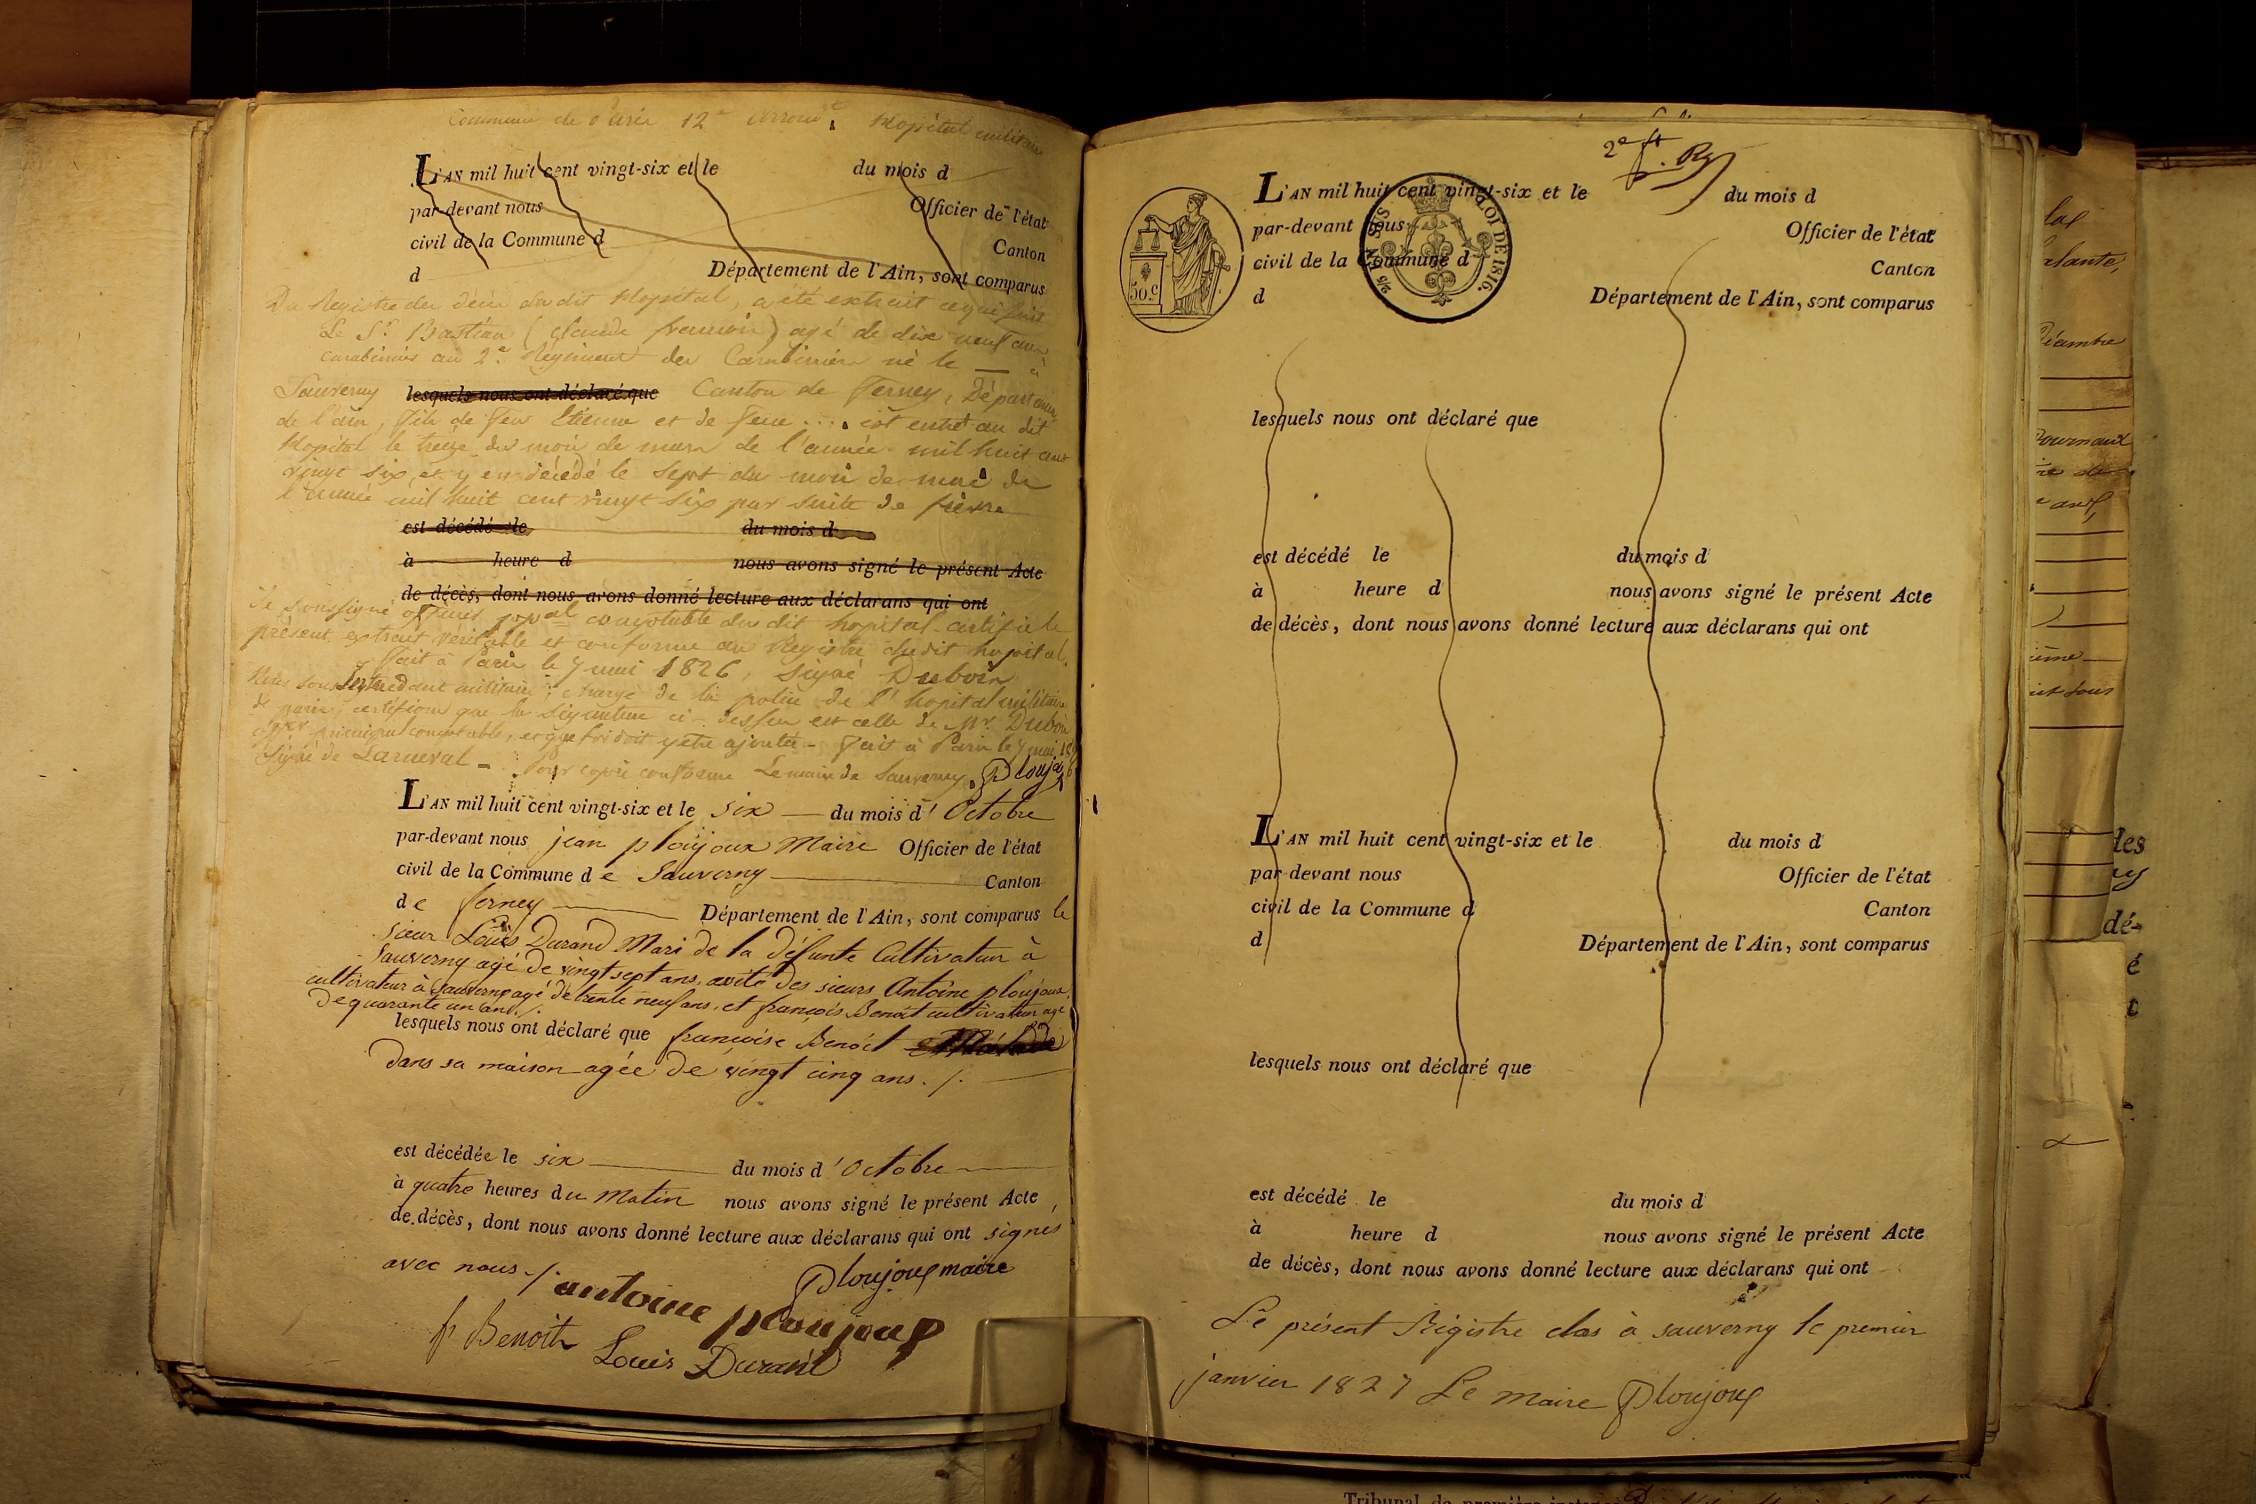 Commune de Paris 12e arrondt. Hopital militaire
L'AN mil huit cent vingt-six et le du mois d
par-devant nous Officier de l'état
civil de la Commune d Canton
d Département de l'Ain, sont comparus
Du Registre des décès du dit Hopital, a été extrait ce qui suit
Le Sr. Bastian (claude françois) agé de dix neuf ans
carabinier au 2e. Régiment des Carabiniers né le — à
Sauverny lesquels nous ont déclaré que Canton de Ferney, Département
de l'ain, fils de feu Etienne et de feue .... est entré au dit
Hopital le treize du mois de mars de l'année mil huit cent
vingt six, et y est décédé le sept du mois de mai de
l'année mil huit cent vingt six par suite de fièvre
est décédé le du mois d
à heure d nous avons signé le présent Acte
de décès, dont nous avons donné lecture aux déclarans qui ont
Je soussigné officier comptable du dit hopital certifie le
présent extrait véritable et conforme au Registre du dit hopital.
Fait à Paris le 7 mai 1826, signé Dubois
Nous sous Intendant militaire chargé de la police de l'hopital militaire
de paris, certifions que la signature ci-dessus est celle de Mr. Dubois
principal comptable, et que foi doit y être ajoutée - Fait à Paris le 7 mai
signé de Larneval - Pour copie conforme Le maire de Sauverny Ploujoux
L'AN mil huit cent vingt-six et le six du mois d'Octobre
par-devant nous jean ploujoux Maire Officier de l'état
civil de la Commune de Sauverny Canton
de ferney Département de l'Ain, sont comparus le
sieur Louis Durand Mari de la défunte Cultivateur à
Sauverny agé de vingt sept ans, avité des sieurs Antoine ploujoux
cultivateur à Sauverny agé de trente neuf ans, et françois Benoit cultivateur agé
de quarante un ans ./.
lesquels nous ont déclaré que françoise Benoit
dans sa maison agée de vingt cinq ans ./.
est décédée le six du mois d'Octobre
à quatre heures du Matin nous avons signé le présent Acte
de décès, dont nous avons donné lecture aux déclarans qui ont signés
avec nous ./. Ploujoux maire
antoine ploujoux
f Benoit
Louis Durand
2e ft
L'AN mil huit cent vingt-six et le du mois d
par-devant nous Officier de l'état
civil de la Commune d Canton
d Département de l'Ain, sont comparus
50.c
LOI DE 1816.
lesquels nous ont déclaré que
est décédé le du mois d
à heure d nous avons signé le présent Acte
de décès, dont nous avons donné lecture aux déclarans qui ont
L'AN mil huit cent vingt-six et le du mois d
par devant nous Officier de l'état
civil de la Commune d Canton
d Département de l'Ain, sont comparus
lesquels nous ont déclaré que
est décédé le du mois d
à heure d nous avons signé le présent Acte
de décès, dont nous avons donné lecture aux déclarans qui ont
Le présent Régistre clos à sauverny le premier
janvier 1827 Le Maire Ploujoux